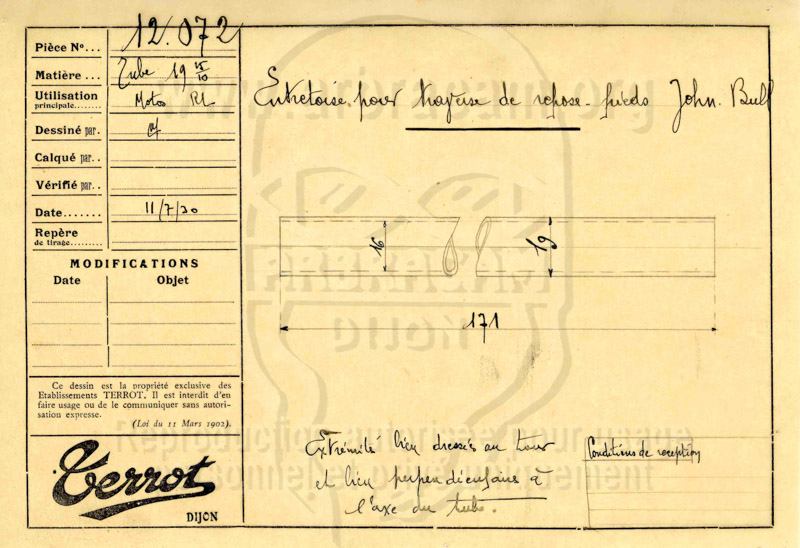 Pièce Nº... 12.072
Matière... Tube 19 15/10
Utilisation principale......... Motos RL
Dessiné par.
Calqué par..
Vérifié par..
Date....... 11/7/30
Repère
de tirage.........
MODIFICATIONS
Date Objet
Ce dessin est la propriété exclusive des
Etablissements TERROT. Il est interdit d'en
faire usage ou de le communiquer sans autori-
sation expresse.
(Loi du 11 Mars 1902).
Terrot
DIJON
Entretoise pour traverse de repose-pieds John. Bull
16
19
171
Extrémité bien dressés au tour
et bien perpendiculaire à
l'axe du tube.
Conditions de reception
www.arbracam.org
ARBRACAM
DIJON
Reproduction autorisée pour usage
personnel uniquement